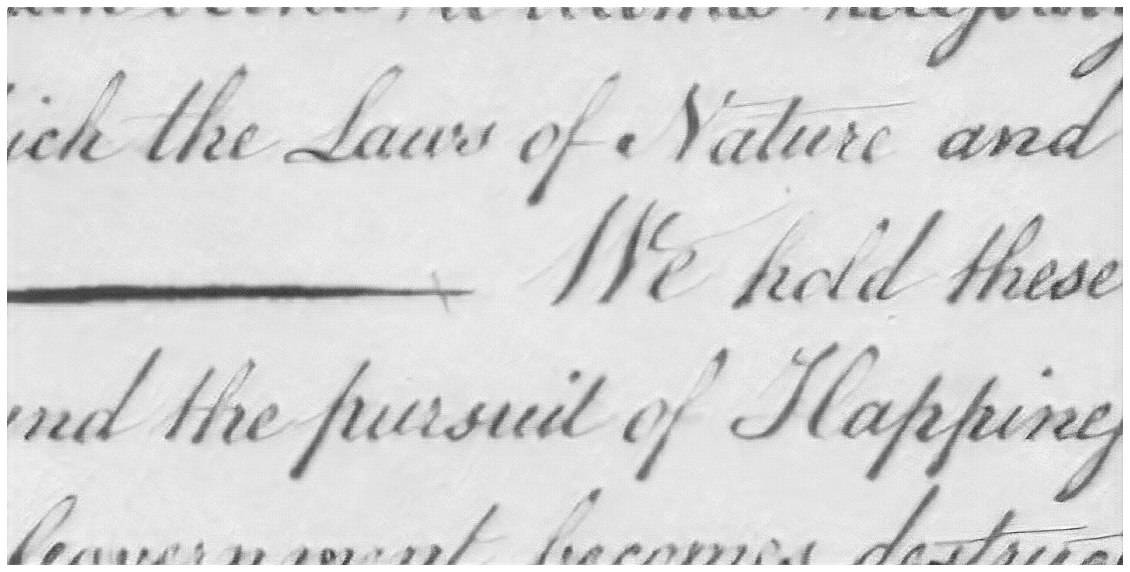 ich the Laws of Nature and
We hold these
and the pursuit of Happines
Government becomes destruc